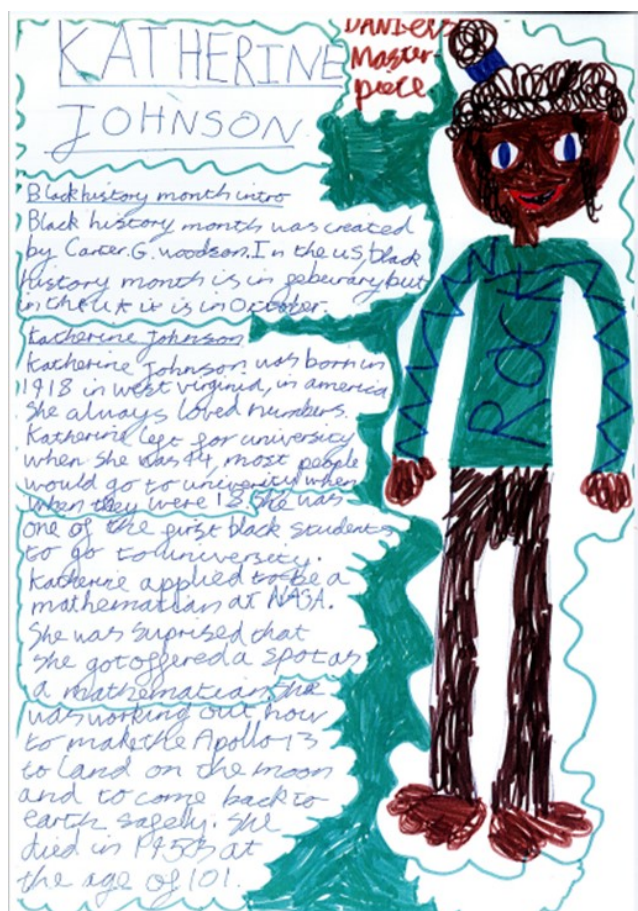 KATHERINE
JOHNSON
DANIEL'S
Master-
piece
Black history month intro
Black history month was created
by Carter.G.woodson.In the us, black
history month is in feburary but
in the uk it is in October.
Katherine Johnson
Katherine Johnson was born in
1918 in west virginia, in america
She always loved numbers.
Katherine left for university
when she was 14, most people
would go to university when
when they were 18. She was
one of the first black students
to go to university.
Katherine applied to be a
mathematian at NASA.
She was suprised that
she got offered a spot as
a mathematian. She
was working out how
to make the Apollo 13
to land on the moon
and to come back to
earth safely. She
died in at
the age of 101.
ROCK